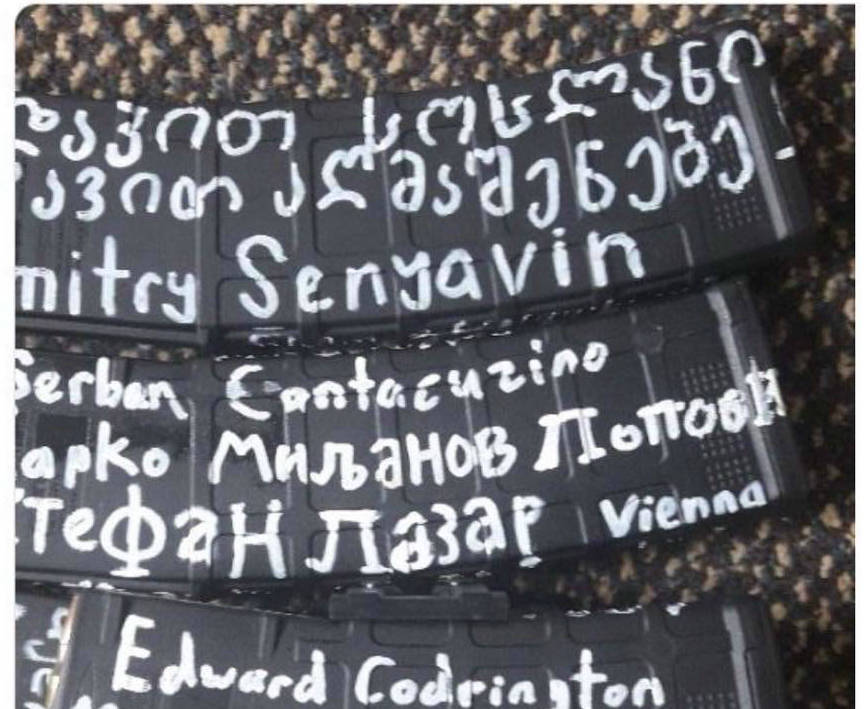 დავით სოსლანი
ავით აღმაშენებე
mitry Senyavin
Serban Cantacuzino
арко Миљанов Попови
Стефан Лазар Vienna
Edward Codrington